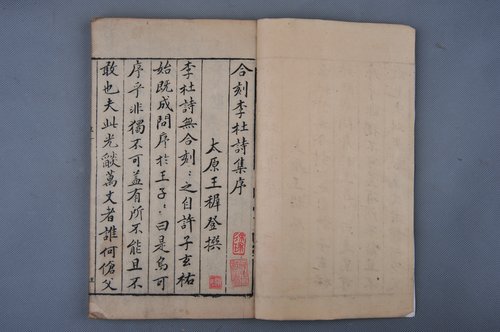 合刻李杜詩集序
太原王穉登撰
李杜詩無合刻〻之自許子玄祐
始既成問序於王子〻曰是烏可
序乎非獨不可蓋有所不能且不
敢也夫此光燄萬丈者誰何傖父